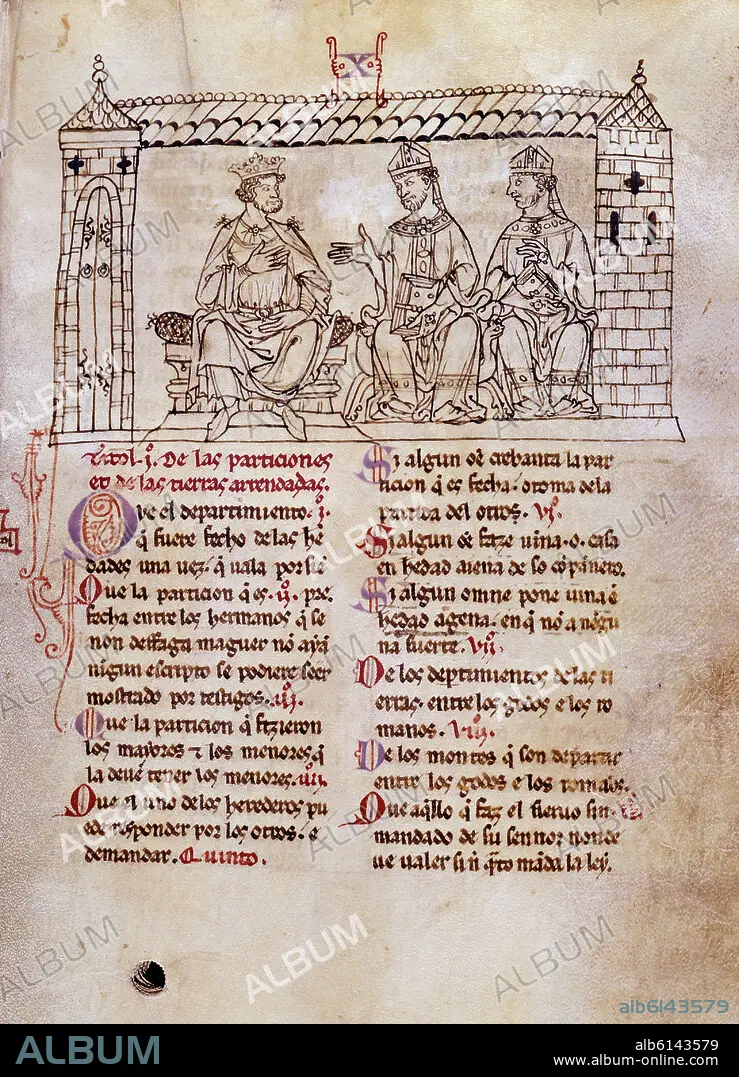 X
Titol .jº. De las particiones
et de las tierras arrendadas.
Que el departimiento. .jº.
q̃ fuere fecho de las he
dades una vez. q̃ uala por siẽ
Que la particion q̃ es .ijº. pre.
fecha entre los hermanos q̃ se
non desfaga maguer nõ ayã
nigun escripto se podiere seer
mostrado por testigos. .iijº.
Que la particion q̃ fizieron
los mayores ⁊ los menores. q̃
la deuẽ tener los menores. .iiijº.
Que el uno de los herederos pu
ede responder por los otros. e
demandar. Quinto.
Si algun oẽ crebanta la par
ticion q̃ es fecha. o toma de la
partida del otro. vjº.
Si algun oẽ faze uina. o. casa
en hedad aiena de so cõpãnero.
Si algun omne pone uina ẽ
hedad agena. en q̃ nõ a nĩgu
na suerte. viijº.
De los departimientos de las ti
erras. entre los godos e los ro
manos. viiijº.
De los montes q̃ son departir
entre los godos e los romãos.
Que aq̃llo q̃ faz el sieruo sin.
mandado de su sennor non de
ue ualer si nõ q̃nto mãda la ley.
ALBUM
alb6143579
ALBUM
alb6143579
www.album-online.com